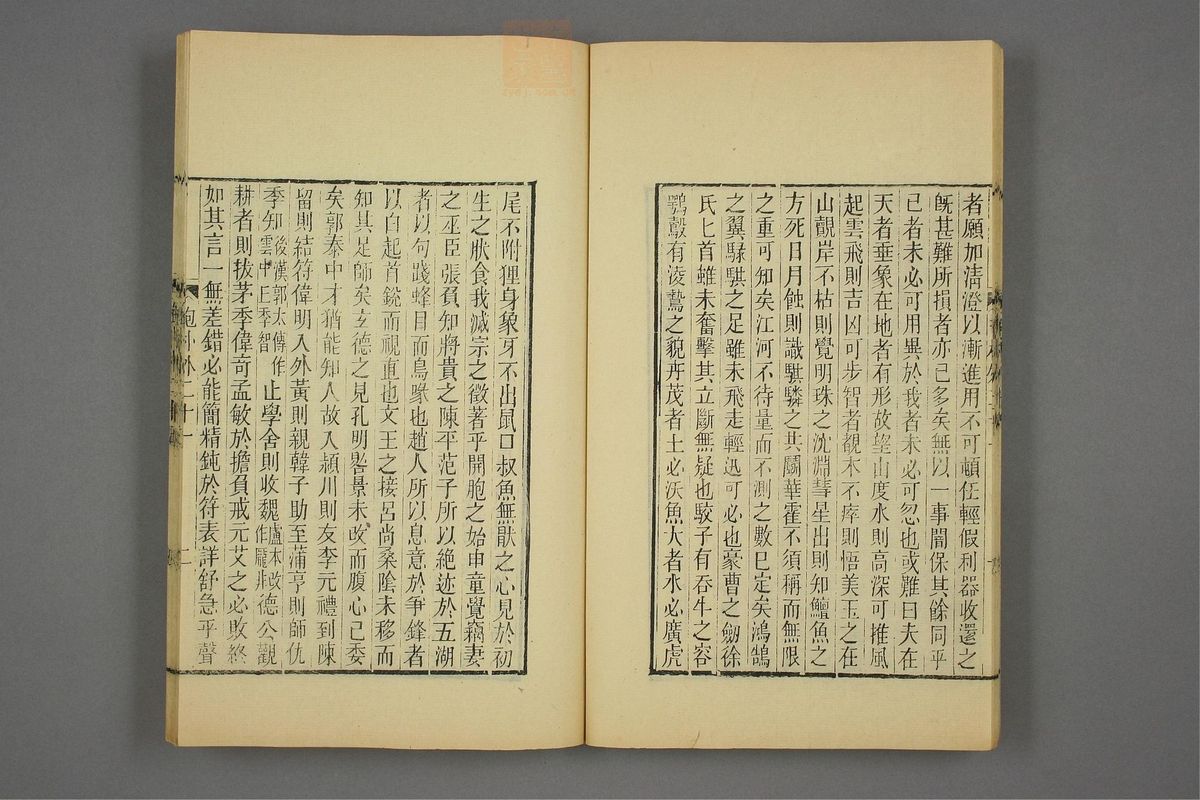 者願加清澄以漸進用不可頓任輕假利器收還之
既甚難所損者亦已多矣無以一事闇保其餘同乎
已者未必可用異於我者未必可忽也或難曰夫在
天者垂象在地者有形故望山度水則高深可推風
起雲飛則吉凶可步智者覩木不瘁則悟美玉之在
山覿岸不枯則覺明珠之沈淵彗星出則知鱣魚之
方死日月蝕則識騏驎之共鬭華霍不須稱而無限
之重可知矣江河不待量而不測之數已定矣鴻鵠
之翼騄騏之足雖未飛走輕迅可必也豪曹之劒徐
氏匕首雖未奮擊其立斷無疑也駮子有吞牛之容
鶚鷇有淩鷙之貌卉茂者土必沃魚大者水必廣虎
尾不附狸身象牙不出鼠口叔魚無猒之心見於初
生之狀食我滅宗之徵著乎開胞之始申童覺竊妻
之巫臣張負知將貴之陳平范子所以絶迹於五湖
者以句踐蜂目而鳥喙也趙人所以息意於爭鋒者
以白起首鋭而視直也文王之接呂尚桑陰未移而
知其足師矣玄德之見孔明晷景未改而腹心已委
矣郭泰中才猶能知人故入潁川則友李元禮到陳
留則結符偉明入外黃則親韓子助至蒲亭則師仇
季知後漢郭太傳作雲中王季智止學舍則收魏盧本改作龐非德公觀
耕者則拔茅季偉奇孟敏於擔負戒元艾之必敗終
如其言一無差錯必能簡精鈍於符表詳舒急乎聲
抱朴外二十一
二